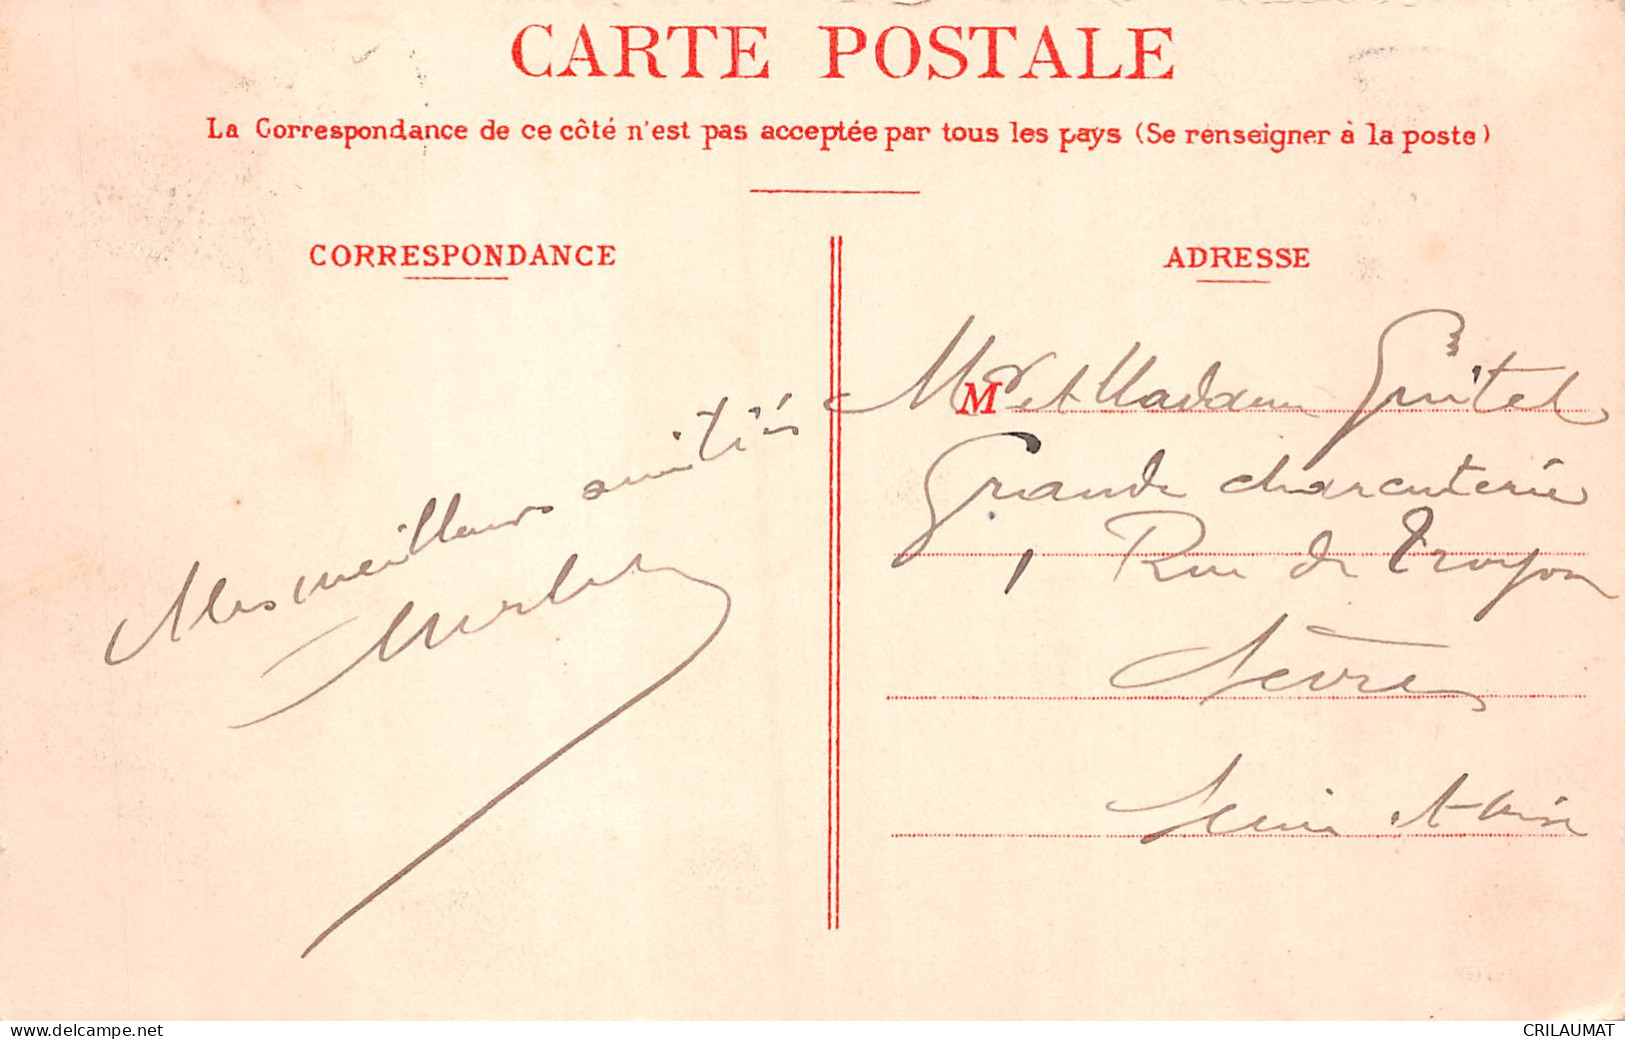 CARTE POSTALE
La Correspondance de ce côté n'est pas acceptée par tous les pays (Se renseigner à la poste)
CORRESPONDANCE
Mes meilleurs amitiés
ADRESSE
M
Mr et Madame Guitel
Grande charcuterie
1 Rue de Troyon
Sèvres
Seine et Oise
www.delcampe.net
CRILAUMAT